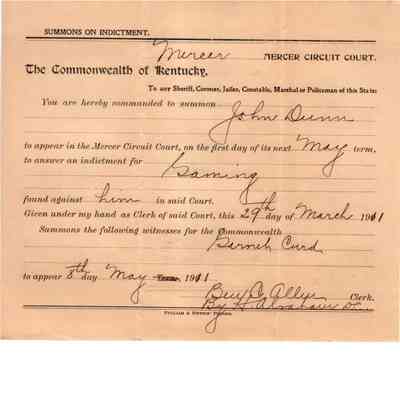 SUMMONS ON INDICTMENT.
Mercer MERCER CIRCUIT COURT.
The Commonwealth of Kentucky,
To any Sheriff, Coroner, Jailer, Constable, Marshal or Policeman of this State:
You are hereby commanded to summon
John Dunn
to appear in the Mercer Circuit Court, on the first day of its next May term,
to answer an indictment for
Gaming
found against him in said Court.
Given under my hand as Clerk of said Court, this 29th day of March 1911
Summons the following witnesses for the Commonwealth
Curd
to appear 8th day May Term, 1911
Ben C. Allin Clerk.
By